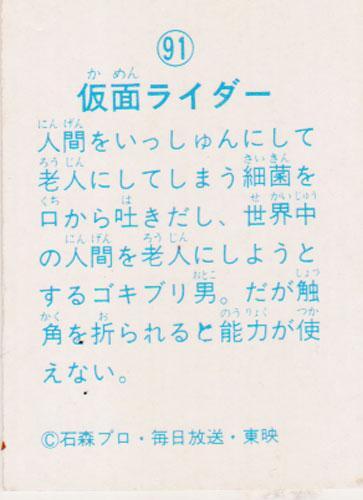 91
仮面ライダー
人間をいっしゅんにして
老人にしてしまう細菌を
口から吐きだし、世界中
の人間を老人にしようと
するゴキブリ男。だが触
角を折られると能力が使
えない。
©石森プロ・毎日放送・東映